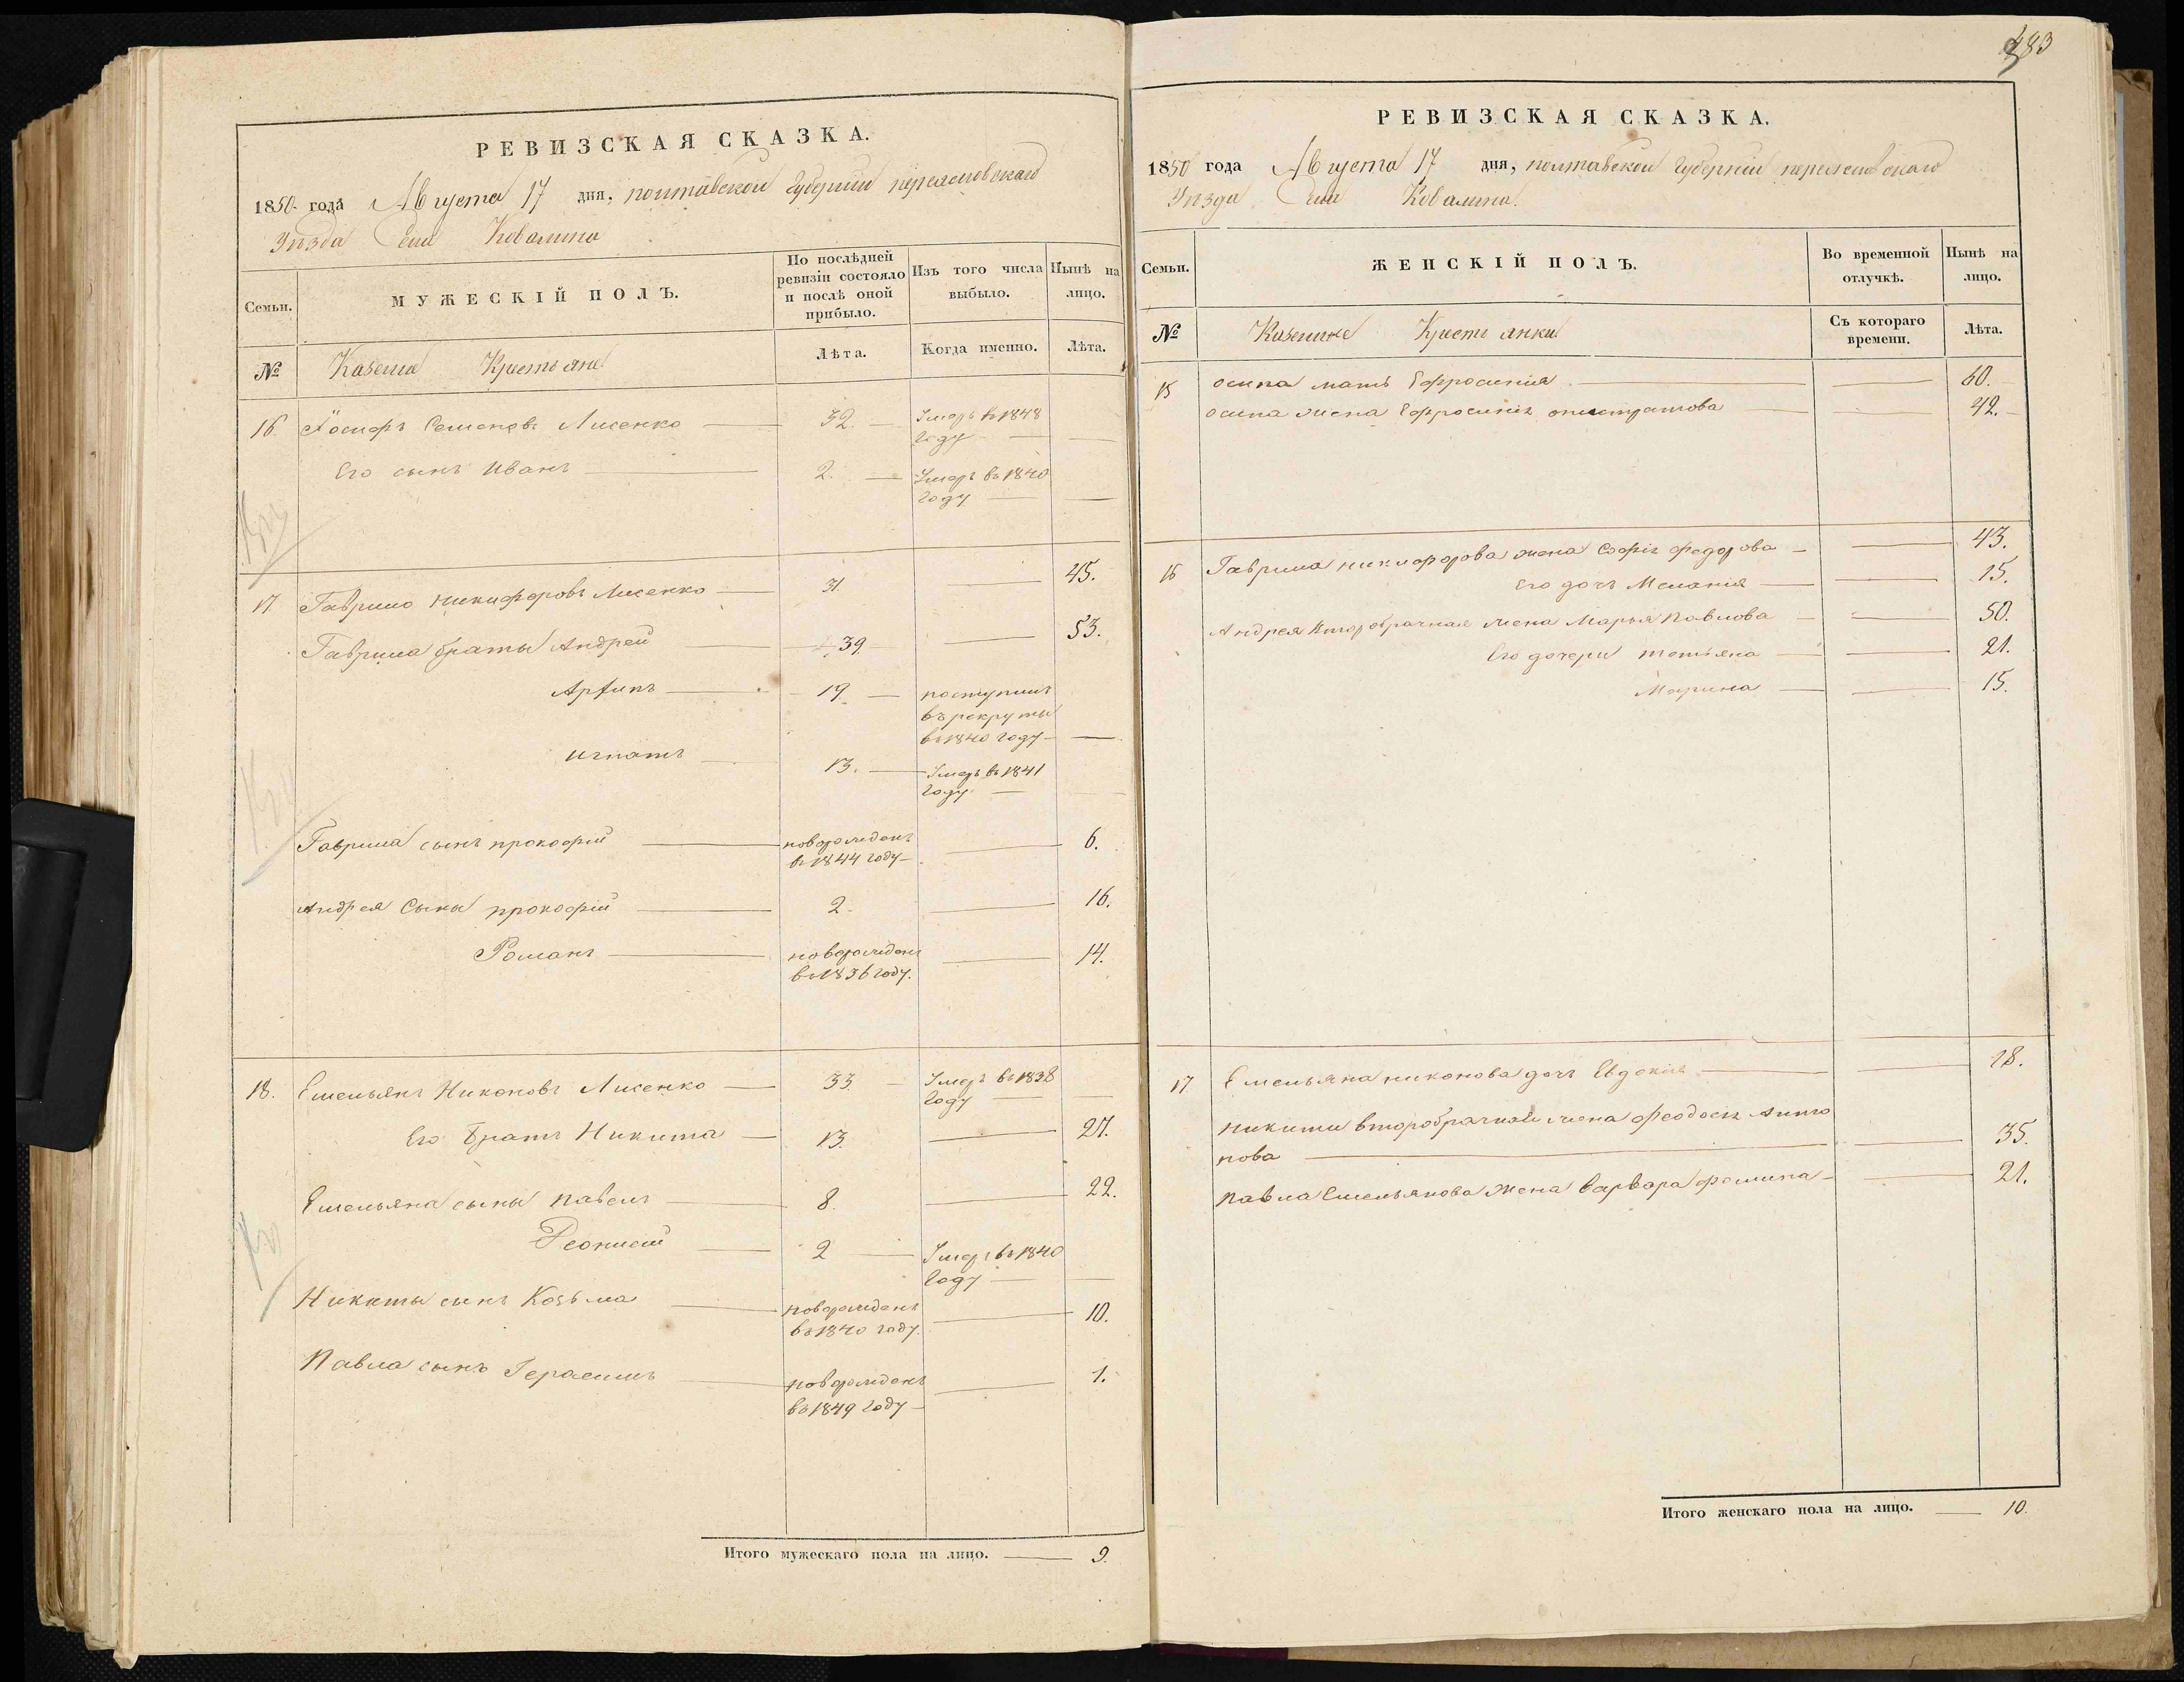 РЕВИЗСКАЯ СКАЗКА.
1850 года Августа 17 дня, полтавской Губернии переясловскаго
Уезда Села Ковалина
Семьи.
МУЖЕСКІЙ ПОЛЪ.
По послѣдней ревизіи состояло и послѣ оной прибыло.
Изъ того числа выбыло.
Нынѣ на лицо.
№
Казеные Крестьяне
Лѣта.
Когда именно.
Лѣта.
16 Іосифъ Семеновъ Лисенко 32. Умеръ въ 1848
Году
Его сынъ Иванъ 2. Умеръ въ 1840
Году
17 Гаврило никифоровъ Лисенко 31. 45.
Гаврила браты Андрей 39 53.
19 поступилъ
въ рекруты
въ 1840 году
игнатъ 13. Умеръ въ 1841
Году
Гаврила сынъ прокофій новорожденъ 6.
въ 1844 году
Андрея Сыны прокофій 2. 16.
Романъ новорожденъ 14.
въ 1836 году.
18. Емельянъ Никоновъ Лисенко 33 Умеръ въ 1838
Году
Его братъ Никита 13. 27.
Емельяна сыны павелъ 8. 22.
2 Умеръ въ 1840
Году
Никиты сынъ Козьма новорожденъ 10.
въ 1840 году.
Павла сынъ Герасимъ новорожденъ 1.
въ 1849 году
Итого мужескаго пола на лицо. 9.
483
РЕВИЗСКАЯ СКАЗКА.
1850 года Августа 17 дня, полтавской Губерніи переясловскаго
Уезда Села Ковалина.
Семьи.
ЖЕНСКІЙ ПОЛЪ.
Во временной отлучкѣ.
Нынѣ на лицо.
№
Казенные Крестьянки
Съ котораго времени.
Лѣта.
15 осипа мать Ефросинія 60.
осипа жена Ефросинія 42.
16 Гаврила никифорова жена Софія федорова 43.
Его дочь Меланія 15.
Андрея второбрачная жена Марья Павлова 50.
Его дочери татьяна 21.
Марина 15.
17 Емельяна никонова дочь Евдокія 18.
никиты второбрачная жена феодосія Анто
нова 35.
павла Емельянова жена варвара фомина 21.
Итого женскаго пола на лицо. 10.